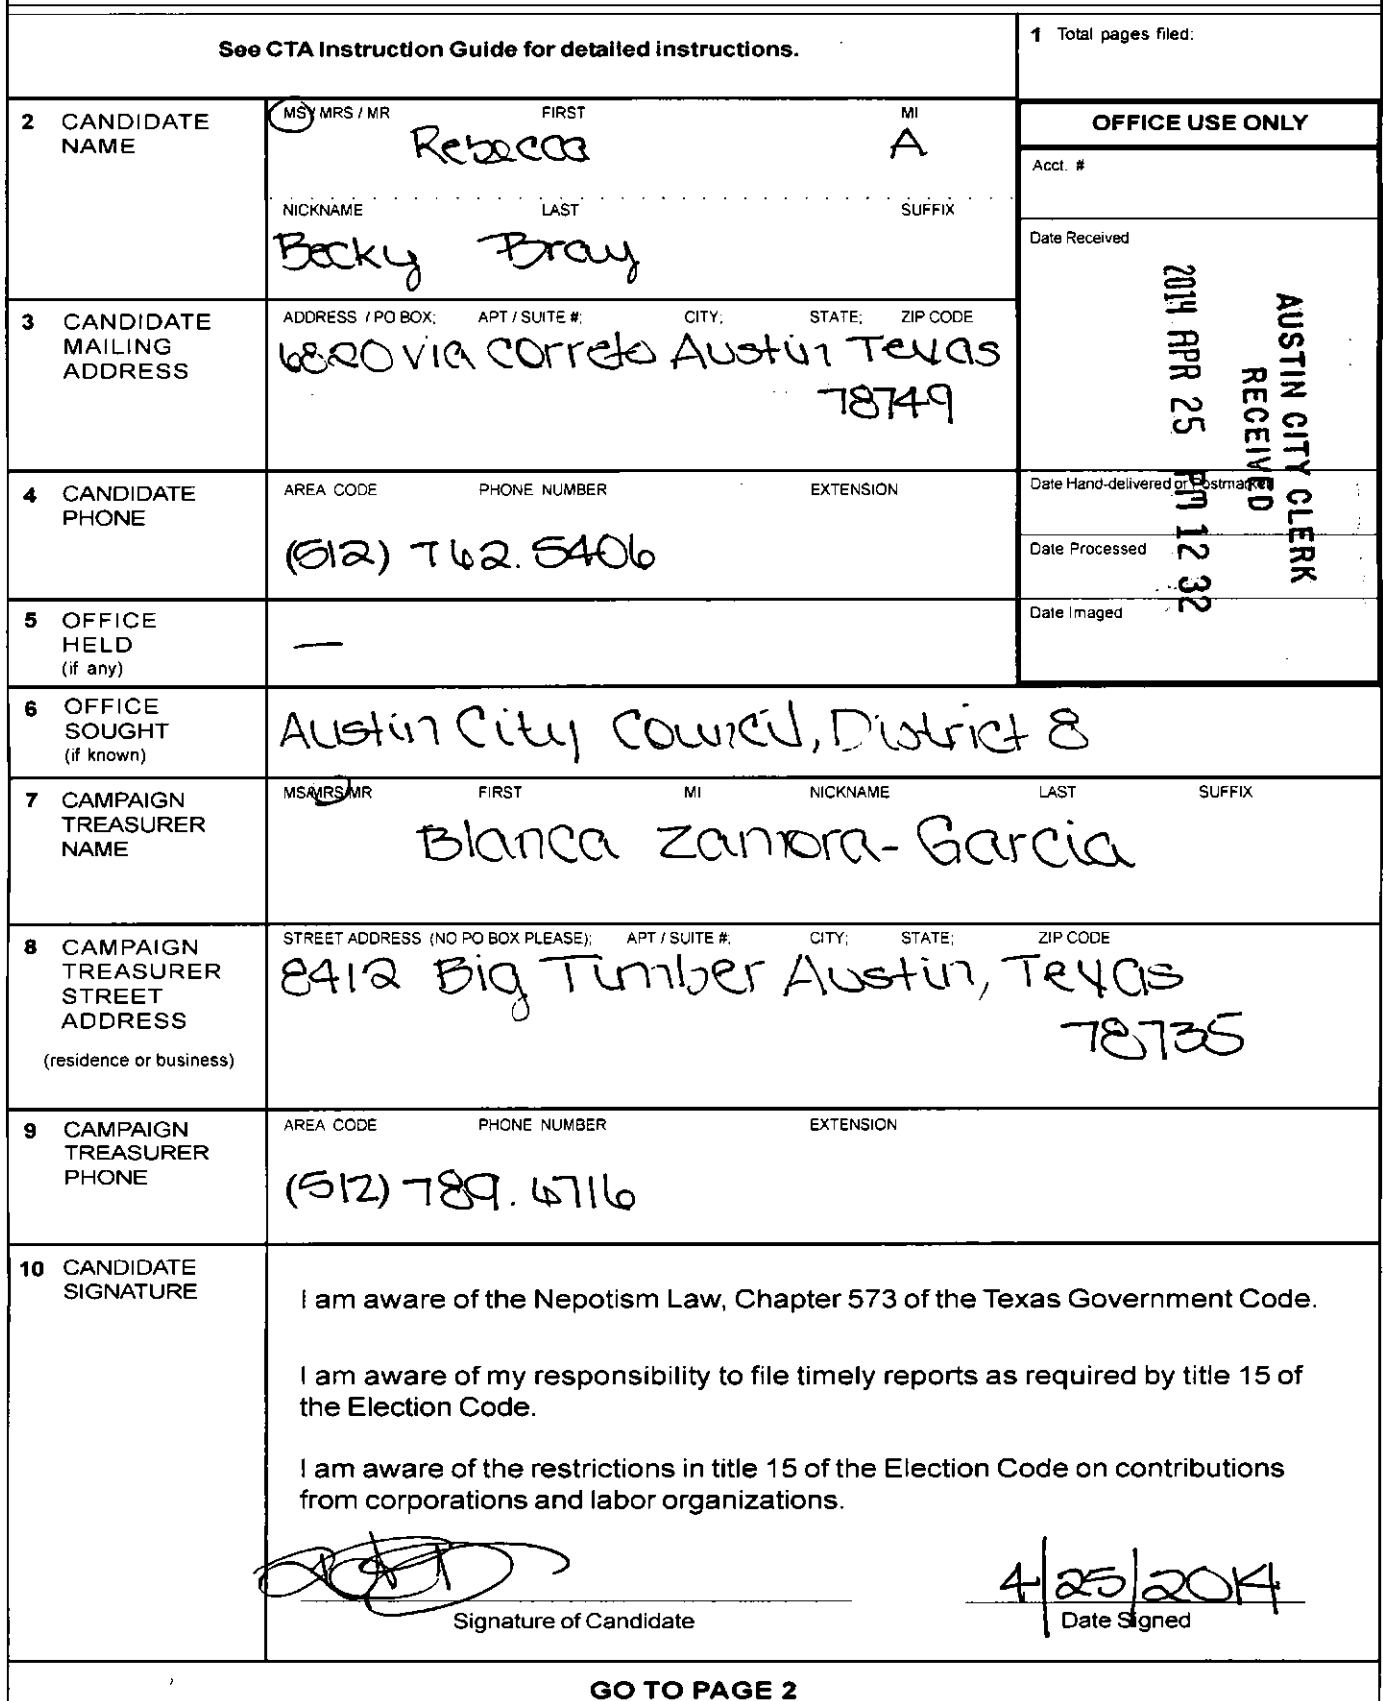 See CTA Instruction Guide for detailed instructions.
1 Total pages filed:
2 CANDIDATE NAME
MS / MRS / MR FIRST MI
Rebecca A
NICKNAME LAST SUFFIX
Becky Bray
OFFICE USE ONLY
Acct. #
Date Received
AUSTIN CITY CLERK
RECEIVED
2014 APR 25 PM 12 32
3 CANDIDATE MAILING ADDRESS
ADDRESS / PO BOX; APT / SUITE #; CITY; STATE; ZIP CODE
6820 via correto Austin Texas
78749
4 CANDIDATE PHONE
AREA CODE PHONE NUMBER EXTENSION
(512) 762.5406
Date Hand-delivered or Postmarked
Date Processed
Date Imaged
5 OFFICE HELD
(if any)
—
6 OFFICE SOUGHT
(if known)
Austin City Council, District 8
7 CAMPAIGN TREASURER NAME
MS/MRS/MR FIRST MI NICKNAME LAST SUFFIX
Blanca Zamora-Garcia
8 CAMPAIGN TREASURER STREET ADDRESS
(residence or business)
STREET ADDRESS (NO PO BOX PLEASE); APT / SUITE #; CITY; STATE; ZIP CODE
8412 Big Timber Austin, Texas
78735
9 CAMPAIGN TREASURER PHONE
AREA CODE PHONE NUMBER EXTENSION
(512) 789.6716
10 CANDIDATE SIGNATURE
I am aware of the Nepotism Law, Chapter 573 of the Texas Government Code.
I am aware of my responsibility to file timely reports as required by title 15 of
the Election Code.
I am aware of the restrictions in title 15 of the Election Code on contributions
from corporations and labor organizations.
4/25/2014
Signature of Candidate Date Signed
GO TO PAGE 2